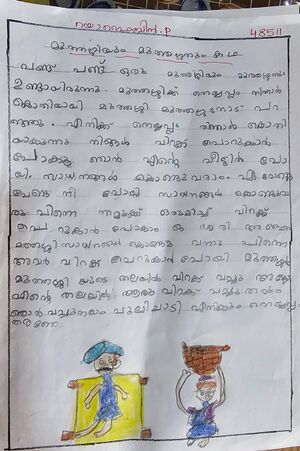 റയാഫെബിൻ. P 48511
മുത്തശ്ശിയും മുത്തശ്ശനും കഥ
പണ്ട് പണ്ട് ഒരു മുത്തശ്ശിയും മുത്തശ്ശനും
ഉണ്ടായിരുന്നു. മുത്തശ്ശിക്ക് നെയ്യപ്പം തിന്നാൻ
കൊതിയായി മുത്തശ്ശി മുത്തശ്ശനോട് പറ
ഞ്ഞു. എനിക്ക് നെയ്യപ്പം തിന്നാൻ കൊതി
യാകുന്നു നിങ്ങൾ വിറക് പെറുക്കാൻ
പോകൂ ഞാൻ എന്റെ വീട്ടിൽ പോ
യി. സാധനങ്ങൾ കൊണ്ടുവരാം. എ വേണ്ട
വേണ്ട നീ പോയി സാധനങ്ങൾ കൊണ്ടുവ
രൂ പിന്നെ നമുക്ക് ഒരുമിച്ച് വിറക്
പെറുക്കാൻ പോകാം ഒ ശരി അങ്ങനെ
മുത്തശ്ശി സാധനങ്ങൾ കൊണ്ടു വന്നു പിന്നെ
അവർ വിറക് പെറുകാൻ പോയി. മുത്തശ്ശൻ
മുത്തശ്ശി യുടെ തലകിൽ വിറക് വച്ചു
എന്റെ തലയിൽ ആര് വിറക് വച്ചു തരും
ഞാൻ വച്ചുതരാം പുലി ചാടി എനിക്കും നെയ്യപ്പം
തരണേ.